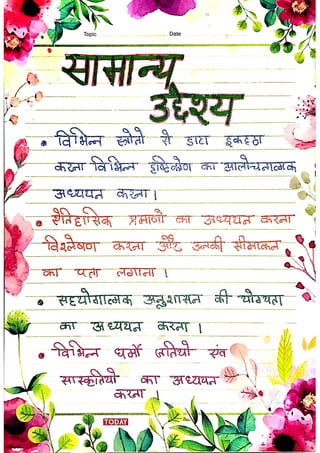 Topic Date
सामान्य
उद्देश्य
• विभिन्न स्त्रोतो से डाटा इकट्ठा
करना विभिन्न दृष्टिकोण का आलोचनात्मक
अध्ययन करना।
• ऐतिहासिक प्रमाणो का अध्ययन करना
विश्लेषण करना और उनकी सीमाकन
का पता लगाना।
• सहयोगात्मक अनुशासन की योग्यता
का अध्ययन करना।
• विभिन्न धर्मो जातियो एंव
सास्कृतियो का अध्ययन
करना।
TODAY